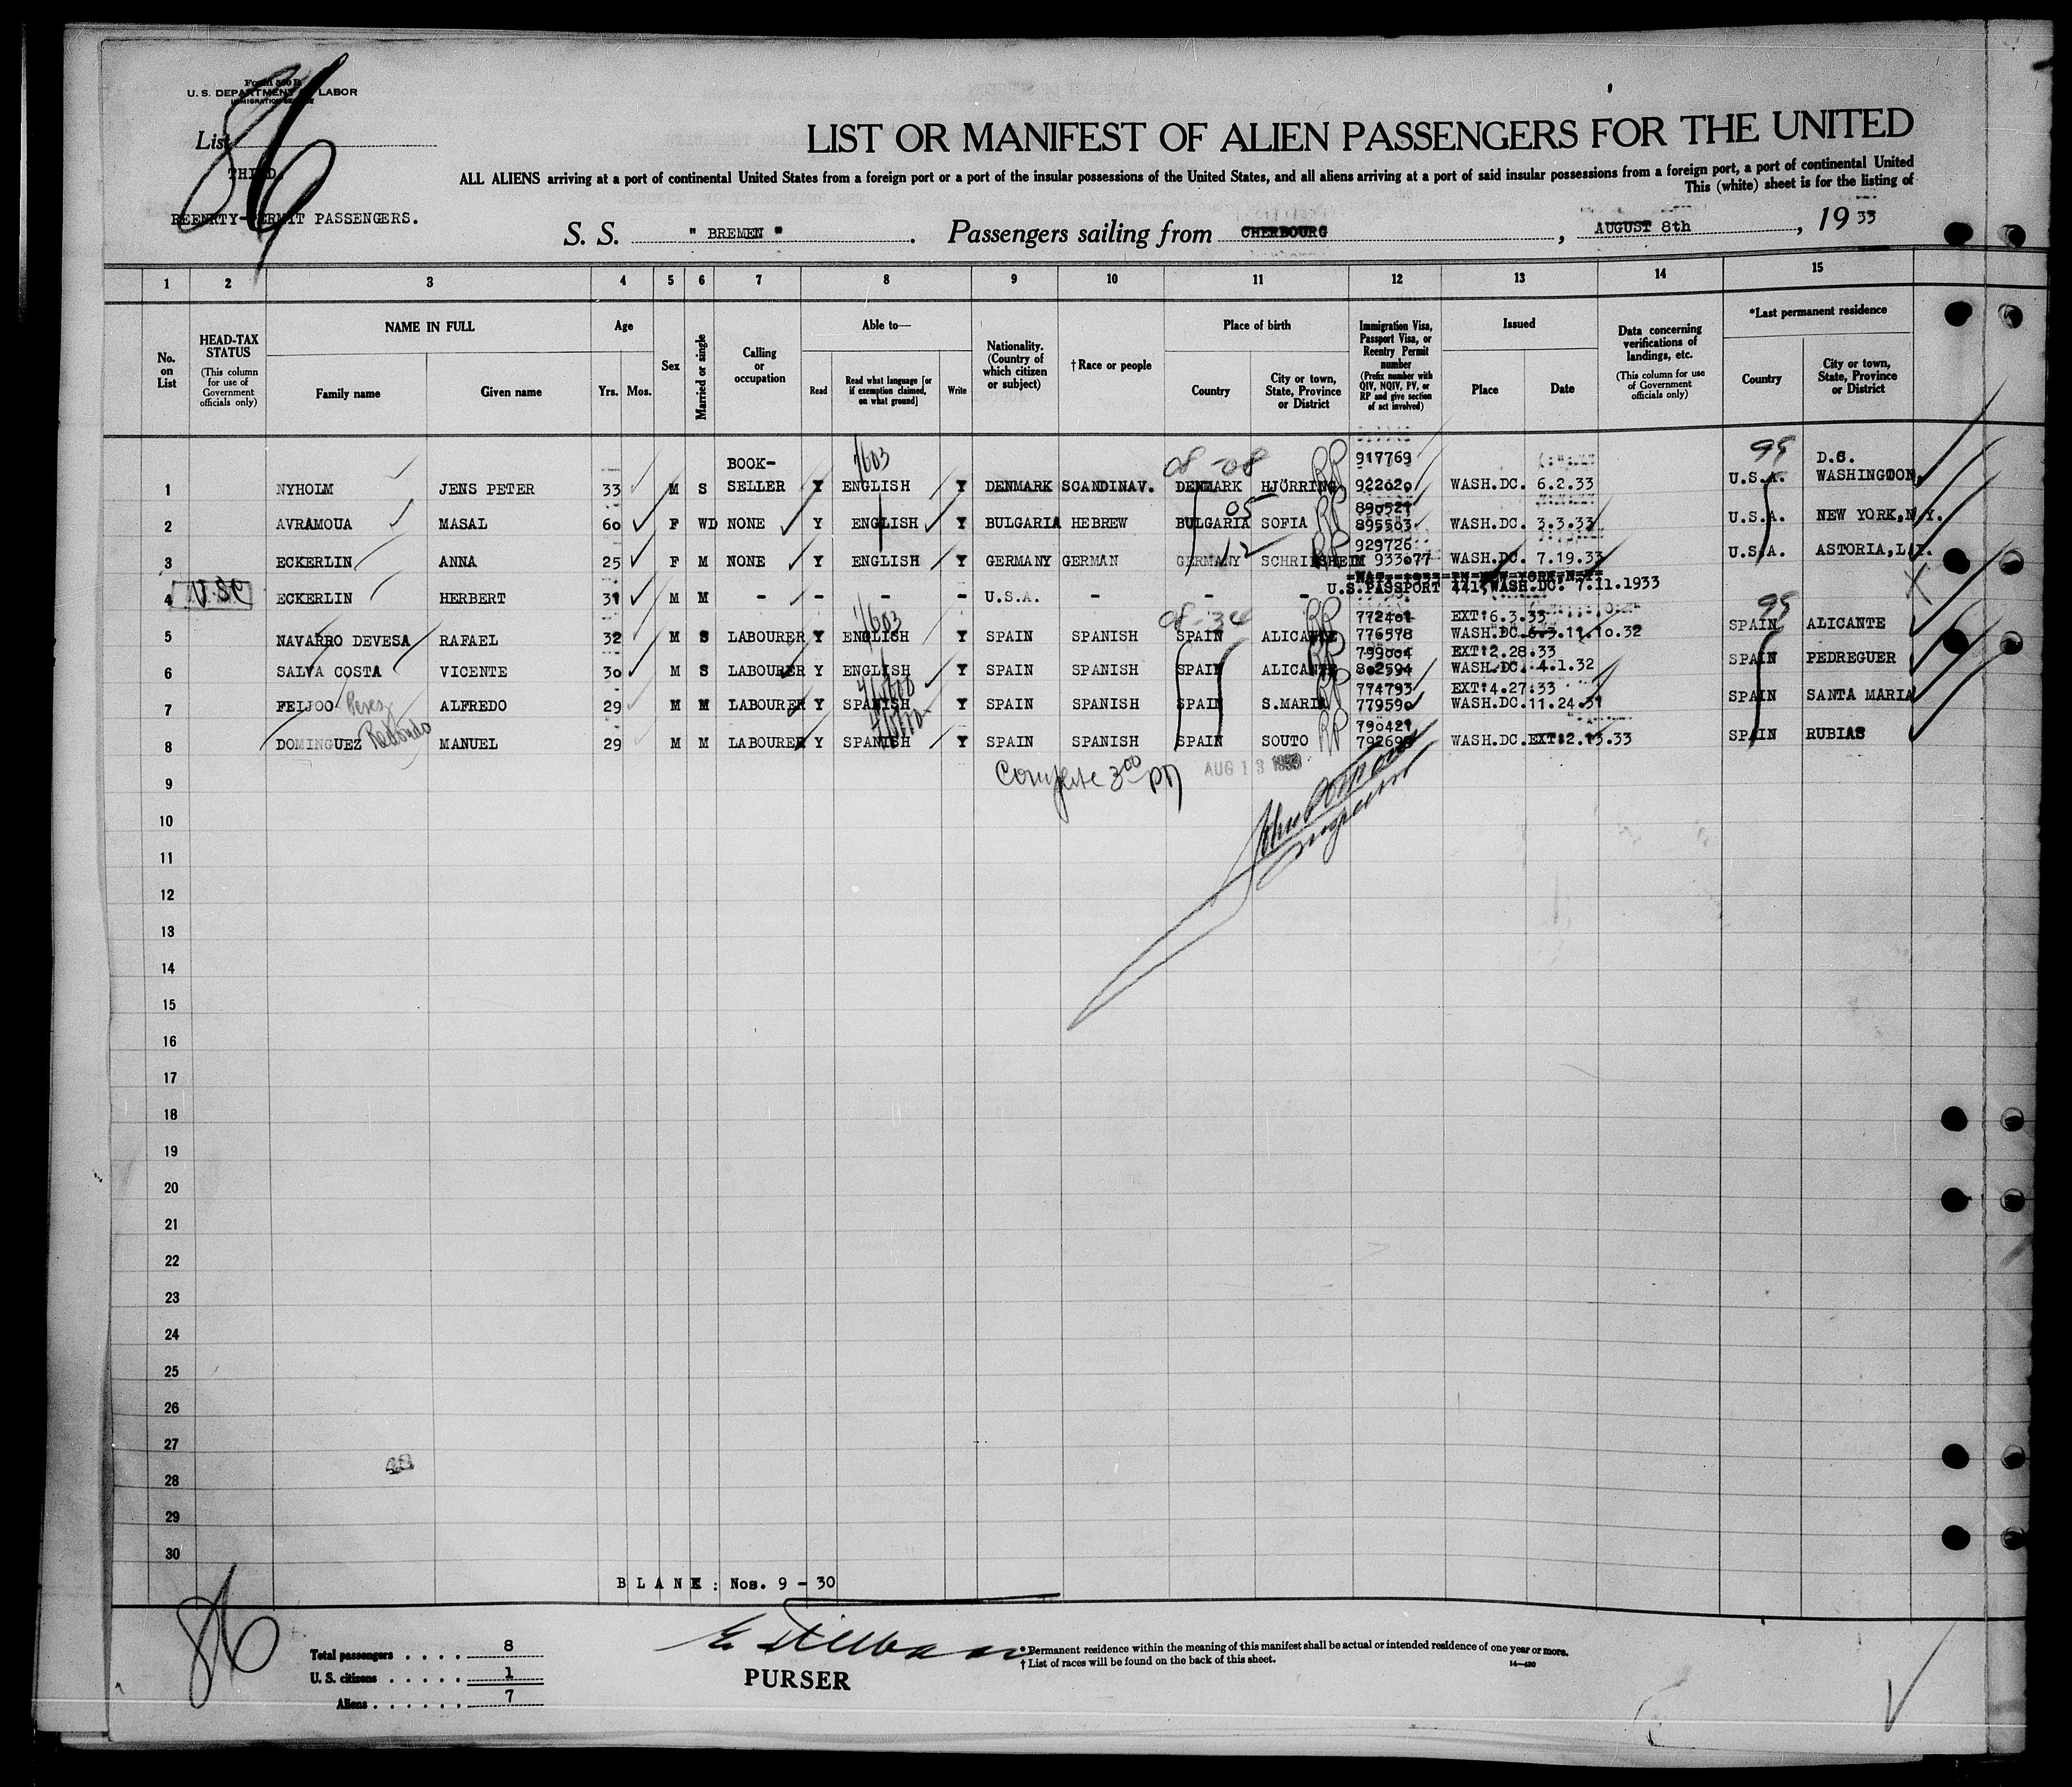 Form 500 B
U. S. DEPARTMENT OF LABOR
IMMIGRATION SERVICE
86
List
THIRD.
REENRTY-PERMIT PASSENGERS.
LIST OR MANIFEST OF ALIEN PASSENGERS FOR THE UNITED
ALL ALIENS arriving at a port of continental United States from a foreign port or a port of the insular possessions of the United States, and all aliens arriving at a port of said insular possessions from a foreign port, a port of continental United
This (white) sheet is for the listing of
S. S. " BREMEN " . Passengers sailing from CHERBOURG , AUGUST 8th , 19 33
1 2 3 4 5 6 7 8 9 10 11 12 13 14 15
No. on List
HEAD-TAX STATUS (This column for use of Government officials only)
NAME IN FULL
Family name
Given name
Age
Yrs. Mos.
Sex
Married or single
Calling or occupation
Able to—
Read
Read what language [or if exemption claimed, on what ground]
Write
Nationality. (Country of which citizen or subject)
† Race or people
Place of birth
Country
City or town, State, Province or District
Immigration Visa, Passport Visa, or Reentry Permit number (Prefix number with QIV, NQIV, PV, or RP and give section of act involved)
Issued
Place
Date
Data concerning verifications of landings, etc. (This column for use of Government officials only)
*Last permanent residence
Country
City or town, State, Province or District
BOOK- 4603 08-08 RP 917769 99 D.C.
1 NYHOLM JENS PETER 33 M S SELLER Y ENGLISH Y DENMARK SCANDINAV. DENMARK HJÖRRING 922620 WASH.DC. 6.2.33 U.S.A. WASHINGTON,
05 RP 890521
2 AVRAMOUA MASAL 60 F WD NONE Y ENGLISH Y BULGARIA HEBREW BULGARIA SOFIA 895503 WASH.DC. 3.3.33 U.S.A. NEW YORK,N.Y.
12 RP 929726
3 ECKERLIN ANNA 25 F M NONE Y ENGLISH Y GERMANY GERMAN GERMANY SCHRIESHEIM 933077 WASH.DC. 7.19.33 U.S.A. ASTORIA,L.I.
4 USC ECKERLIN HERBERT 31 M M - - - - U.S.A. - - - U.S.PASSPORT 441,WASH.DC. 7.11.1933
4603 08-34 RP 772401 EXT:6.3.33 99
5 NAVARRO DEVESA RAFAEL 32 M S LABOURER Y ENGLISH Y SPAIN SPANISH SPAIN ALICANTE 776578 WASH.DC. 6.3.11.10.32 SPAIN ALICANTE
RP 799004 EXT:2.28.33
6 SALVA COSTA VICENTE 30 M S LABOURER Y ENGLISH Y SPAIN SPANISH SPAIN ALICANTE 802594 WASH.DC. 4.1.32 SPAIN PEDREGUER
RP 774793 EXT:4.27.33
7 FEIJOO Perez ALFREDO 29 M M LABOURER Y SPANISH Y SPAIN SPANISH SPAIN S.MARIA 779590 WASH.DC.11.24.31 SPAIN SANTA MARIA
RP 790421
8 DOMINGUEZ Redondo MANUEL 29 M M LABOURER Y SPANISH Y SPAIN SPANISH SPAIN SOUTO WASH.DC.EXT:2.13.33 SPAIN RUBIAS
Complete 3 00 PM AUG 13 1933
9
10
11
12
13
14
15
16
17
18
19
20
21
22
23
24
25
26
27
28
29
30
BLANK: Nos. 9 - 30
86
Total passengers . . . . 8
U. S. citizens . . . . . 1
Aliens . . . . . . 7
PURSER
* Permanent residence within the meaning of this manifest shall be actual or intended residence of one year or more.
† List of races will be found on the back of this sheet.
14—430